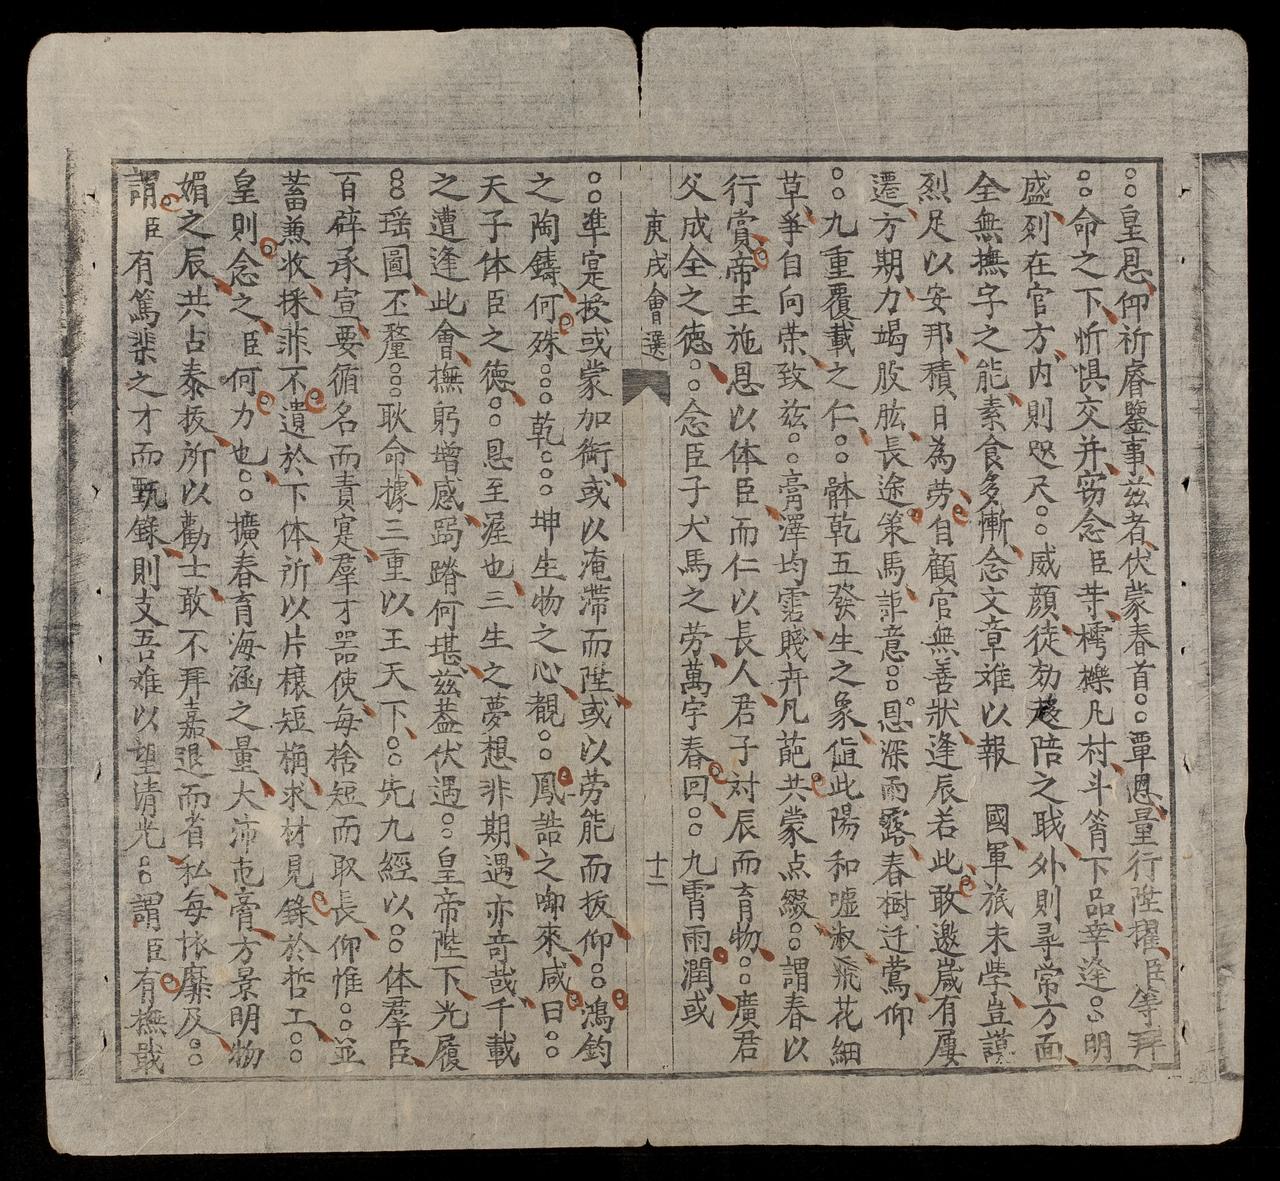 ○○皇恩仰祈睿鑒事茲者伏蒙春首○○覃恩量行陞擢臣等拜
○○命之下忻惧交并窃念臣等樗櫟凡材斗筲下品幸逢○○明
盛列在官方内則咫尺○○威顔徒効趍陪之職外則尋常方面
全無撫字之能素食多慚念文章难以報 國軍旅未學豈謨
烈足以安邦積日為劳自顧官無善狀逢辰若此敢邀歲有屢
遷方期力竭股肱長途策馬詎意○○恩深雨露春樹迁鶯仰
○○九重覆載之仁○○體乾五發生之象値此陽和嘘淑飛花細
草爭自向荣致茲○○膏澤均霑賤卉凡葩共蒙点綴○○謂春以
行賞帝王施恩以体臣而仁以長人君子対辰而育物○○廣君
父成全之德○○念臣子犬馬之劳萬宇春回○○九霄雨潤或
庚戌會選
十二
○○準寔授或蒙加銜或以淹滯而陞或以劳能而拔仰○○鴻鈞
之陶鑄何殊○○○乾○○○坤生物之心覩○○鳳誥之啣來咸曰○○
天子体臣之德○○恩至渥也三生之夢想非期遇亦竒哉千載
之遭逢此會撫躬增感跼蹐何堪茲蓋伏遇○○皇帝陛下光履
○○瑶圖丕釐○○○耿命據三重以王天下○○先九經以○○体羣臣
百辟承宣要循名而責寔羣才器使每捨短而取長仰惟○○並
蓄兼收採非不遺於下体所以片櫰短桷求材見錄於哲工○○
皇則念之臣何力也○○擴春育海涵之量大沛屯膏方景明物
媚之辰共占泰拔所以勸士敢不拜嘉退而省私每怀靡及○○
謂臣有篤棐之才而甄錄則支吾难以望清光○○謂臣有撫戢